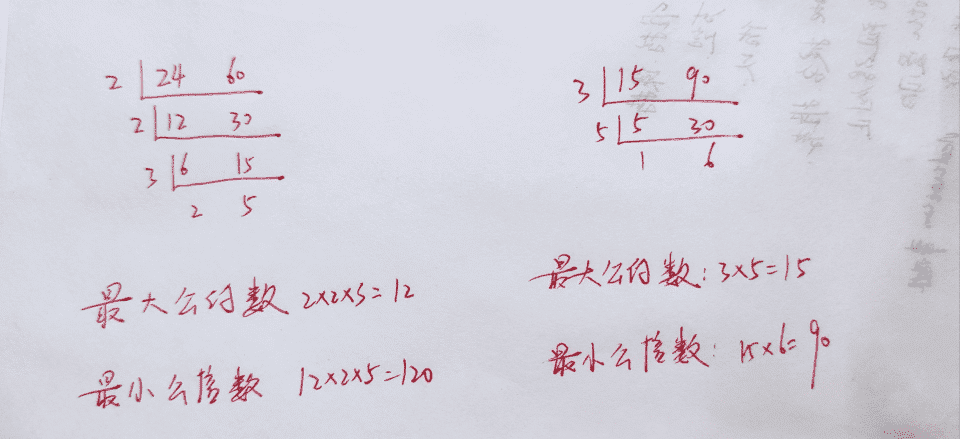 2 24 60
2 12 30
3 6 15
2 5
最大公约数 2×2×3=12
最小公倍数 12×2×5=120
3 15 90
5 5 30
1 6
最大公约数: 3×5=15
最小公倍数: 15×6=90